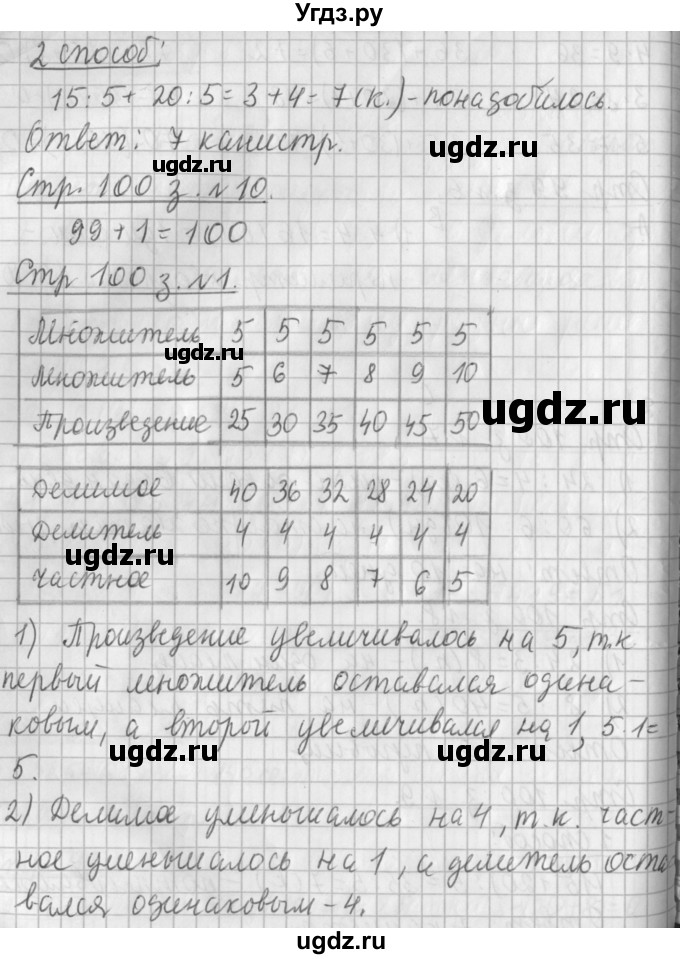 Угдз.ру
2 способ:
15:5+20:5=3+4=7(к.)-понадобилось.
Ответ: 7 канистр.
ugdz.ru
ugdz.ru
Стр. 100 з. №10.
ugdz.ru
99+1=100
Стр 100 з. №1.
Множитель 5 5 5 5 5 5
ugdz.ru
Множитель 5 6 7 8 9 10
Произведение 25 30 35 40 45 50
ugdz.ru
Делимое 40 36 32 28 24 20
Делитель 4 4 4 4 4 4
ugdz.ru
Частное 10 9 8 7 6 5
1) Произведение увеличивалось на 5, т.к
первый множитель оставался одина-
ковым, а второй увеличивался на 1, 5·1=
ugdz.ru
ugdz.ru
5.
2) Делимое уменьшалось на 4, т.к. част-
ное уменьшалось на 1, а делитель оста
вался одинаковым - 4.
ugdz.ru